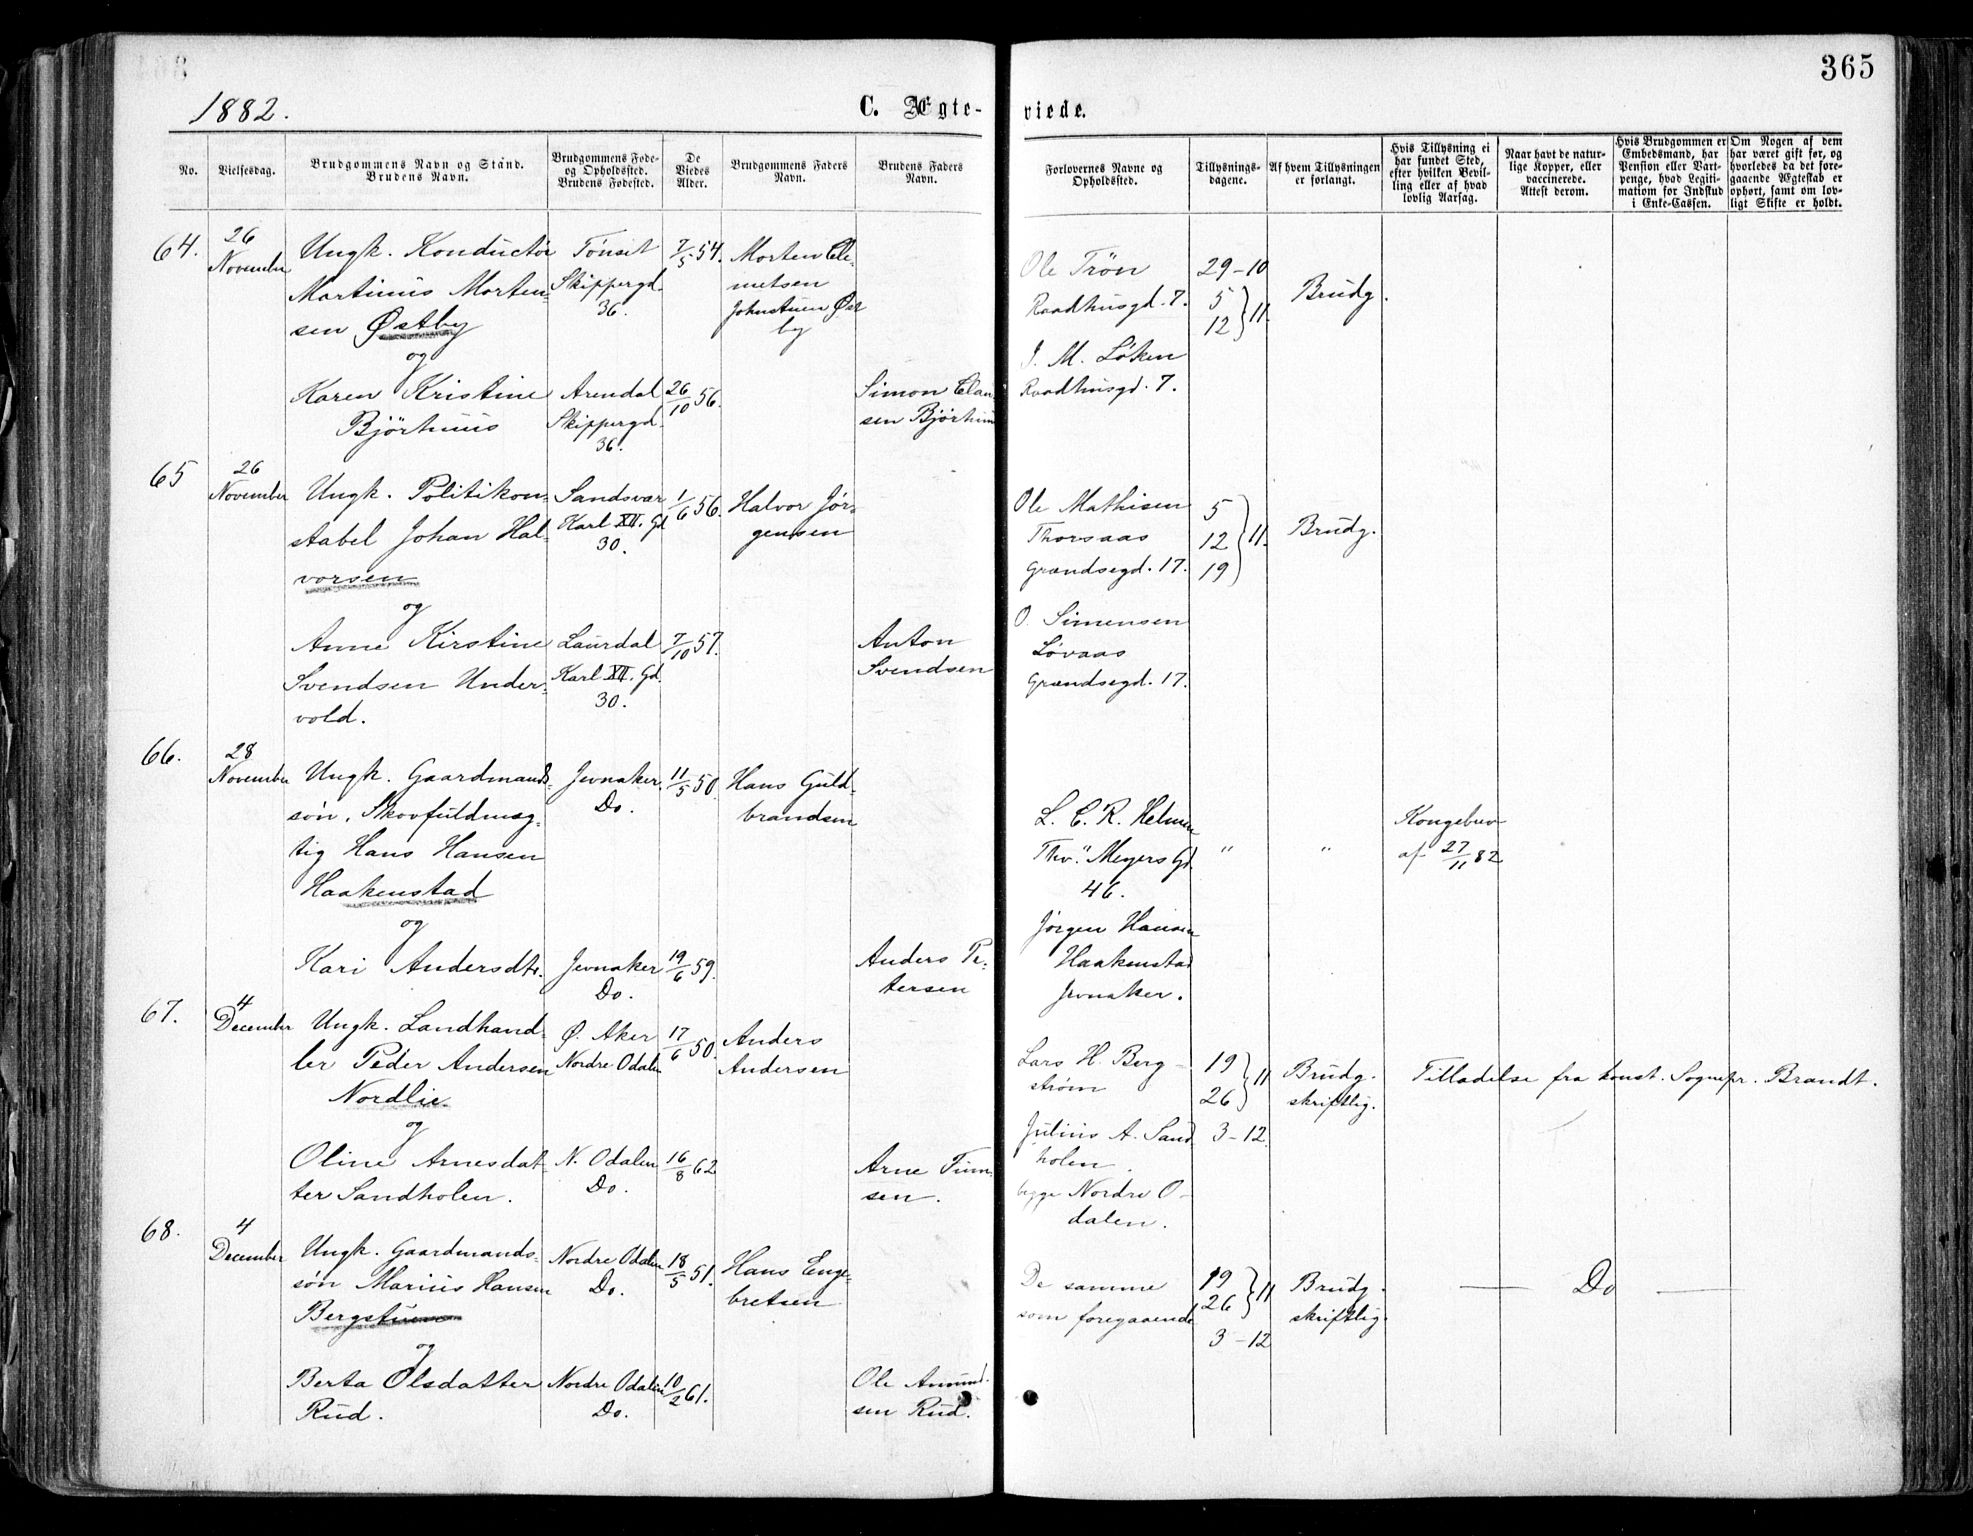 365
1882.
C. Ægte-
viede.
No.
Vielsesdag.
Brudgommens Navn og Stand.
Brudens Navn.
Brudgommens Føde-
og Opholdssted.
Brudens Fødested.
De
Viedes
Alder.
Brudgommens Faders
Navn.
Brudens Faders
Navn.
Forlovernes Navne og
Opholdssted.
Tillysnings-
dagene.
Af hvem Tillysningen
er forlangt.
Hvis Tillysning ei
har fundet Sted,
efter hvilken Bevil-
ling eller af hvad
lovlig Aarsag.
Naar havt de natur-
lige Kopper, eller
vaccinerede.
Attest derom.
Hvis Brudgommen er
Embedsmand, har
Pension eller Vart-
penge, hvad Legiti-
mation for Indskud
i Enke-Cassen.
Om Nogen af dem
har været gift før, og
hvorledes da det fore-
gaaende Ægteskab er
ophørt, samt om lov-
ligt Skifte er holdt.
64.
26
November
Ungk. Konductør
Martinus Morten-
sen Østby
og
Karen Kristine
Bjørhuus
Tønset
Skippergd.
36.
Arendal
Skippergd.
36.
7/5 54.
26/10 56.
Morten Cle-
metsen
Johnstuen Øst
by
Simon Clau
sen Bjørhuus
Ole Trøn
Raadhusgd. 7.
J. M. Løken
Raadhusgd. 7.
29-10
5
12 } 11.
Brudg.
65
26
November
Ungk. Politikon-
stabel Johan Hal-
vorsen
og
Anne Kirstine
Svendsen Under-
vold.
Sandsvær
Karl XII. Gd
30.
Laurdal
Karl XII. Gd.
30.
1/6 56.
7/10 57.
Halvor Jør-
gensen
Anton
Svendsen
Ole Mathisen
Thorsaas
Grændsegd. 17.
O. Simensen
Løvaas
Grændsegd. 17.
5
12
19 } 11.
Brudg.
66.
28
November
Ungk. Gaardmands-
søn, Skovfuldmæg-
tig Hans Hansen
Haakenstad
og
Kari Andersdtr.
Jevnaker.
Do.
Jevnaker
Do.
11/5 50.
19/6 59.
Hans Guld-
brandsen
Anders Pe-
tersen
L. C. R. Helmen
Thv. Meyers Gd.
46.
Jørgen Hansen
Haakenstad
Jevnaker.
"
"
Kongebrev
af 27/11 82
67.
4
December
Ungk. Landhand-
ler Peder Andersen
Nordlie
og
Oline Arnesdat-
ter Sandholen.
Ø. Aker
Nordre Odalen
N. Odalen
Do.
17/6 50.
16/8 62
Anders
Andersen
Arne
sen.
Lars H. Berg-
strøm
Julius A. Sand
holen.
begge Nordre O-
dalen.
19
26 } 11
3-12.
Brudg.
skriftlig.
Tilladelse fra konst. Sognepr. Brandt.
68.
4
December
Ungk. Gaardmands-
søn Marius Hansen
Bergstuen
og
Berta Olsdatter
Rud.
Nordre Odalen
Do.
Nordre Odalen
Do.
18/5 51.
10/2 61.
Hans Enge-
bretsen
Ole Amund-
sen Rud.
De samme
som foregaaende
19
26 } 11
3-12
Brudg.
skriftlig.
Do